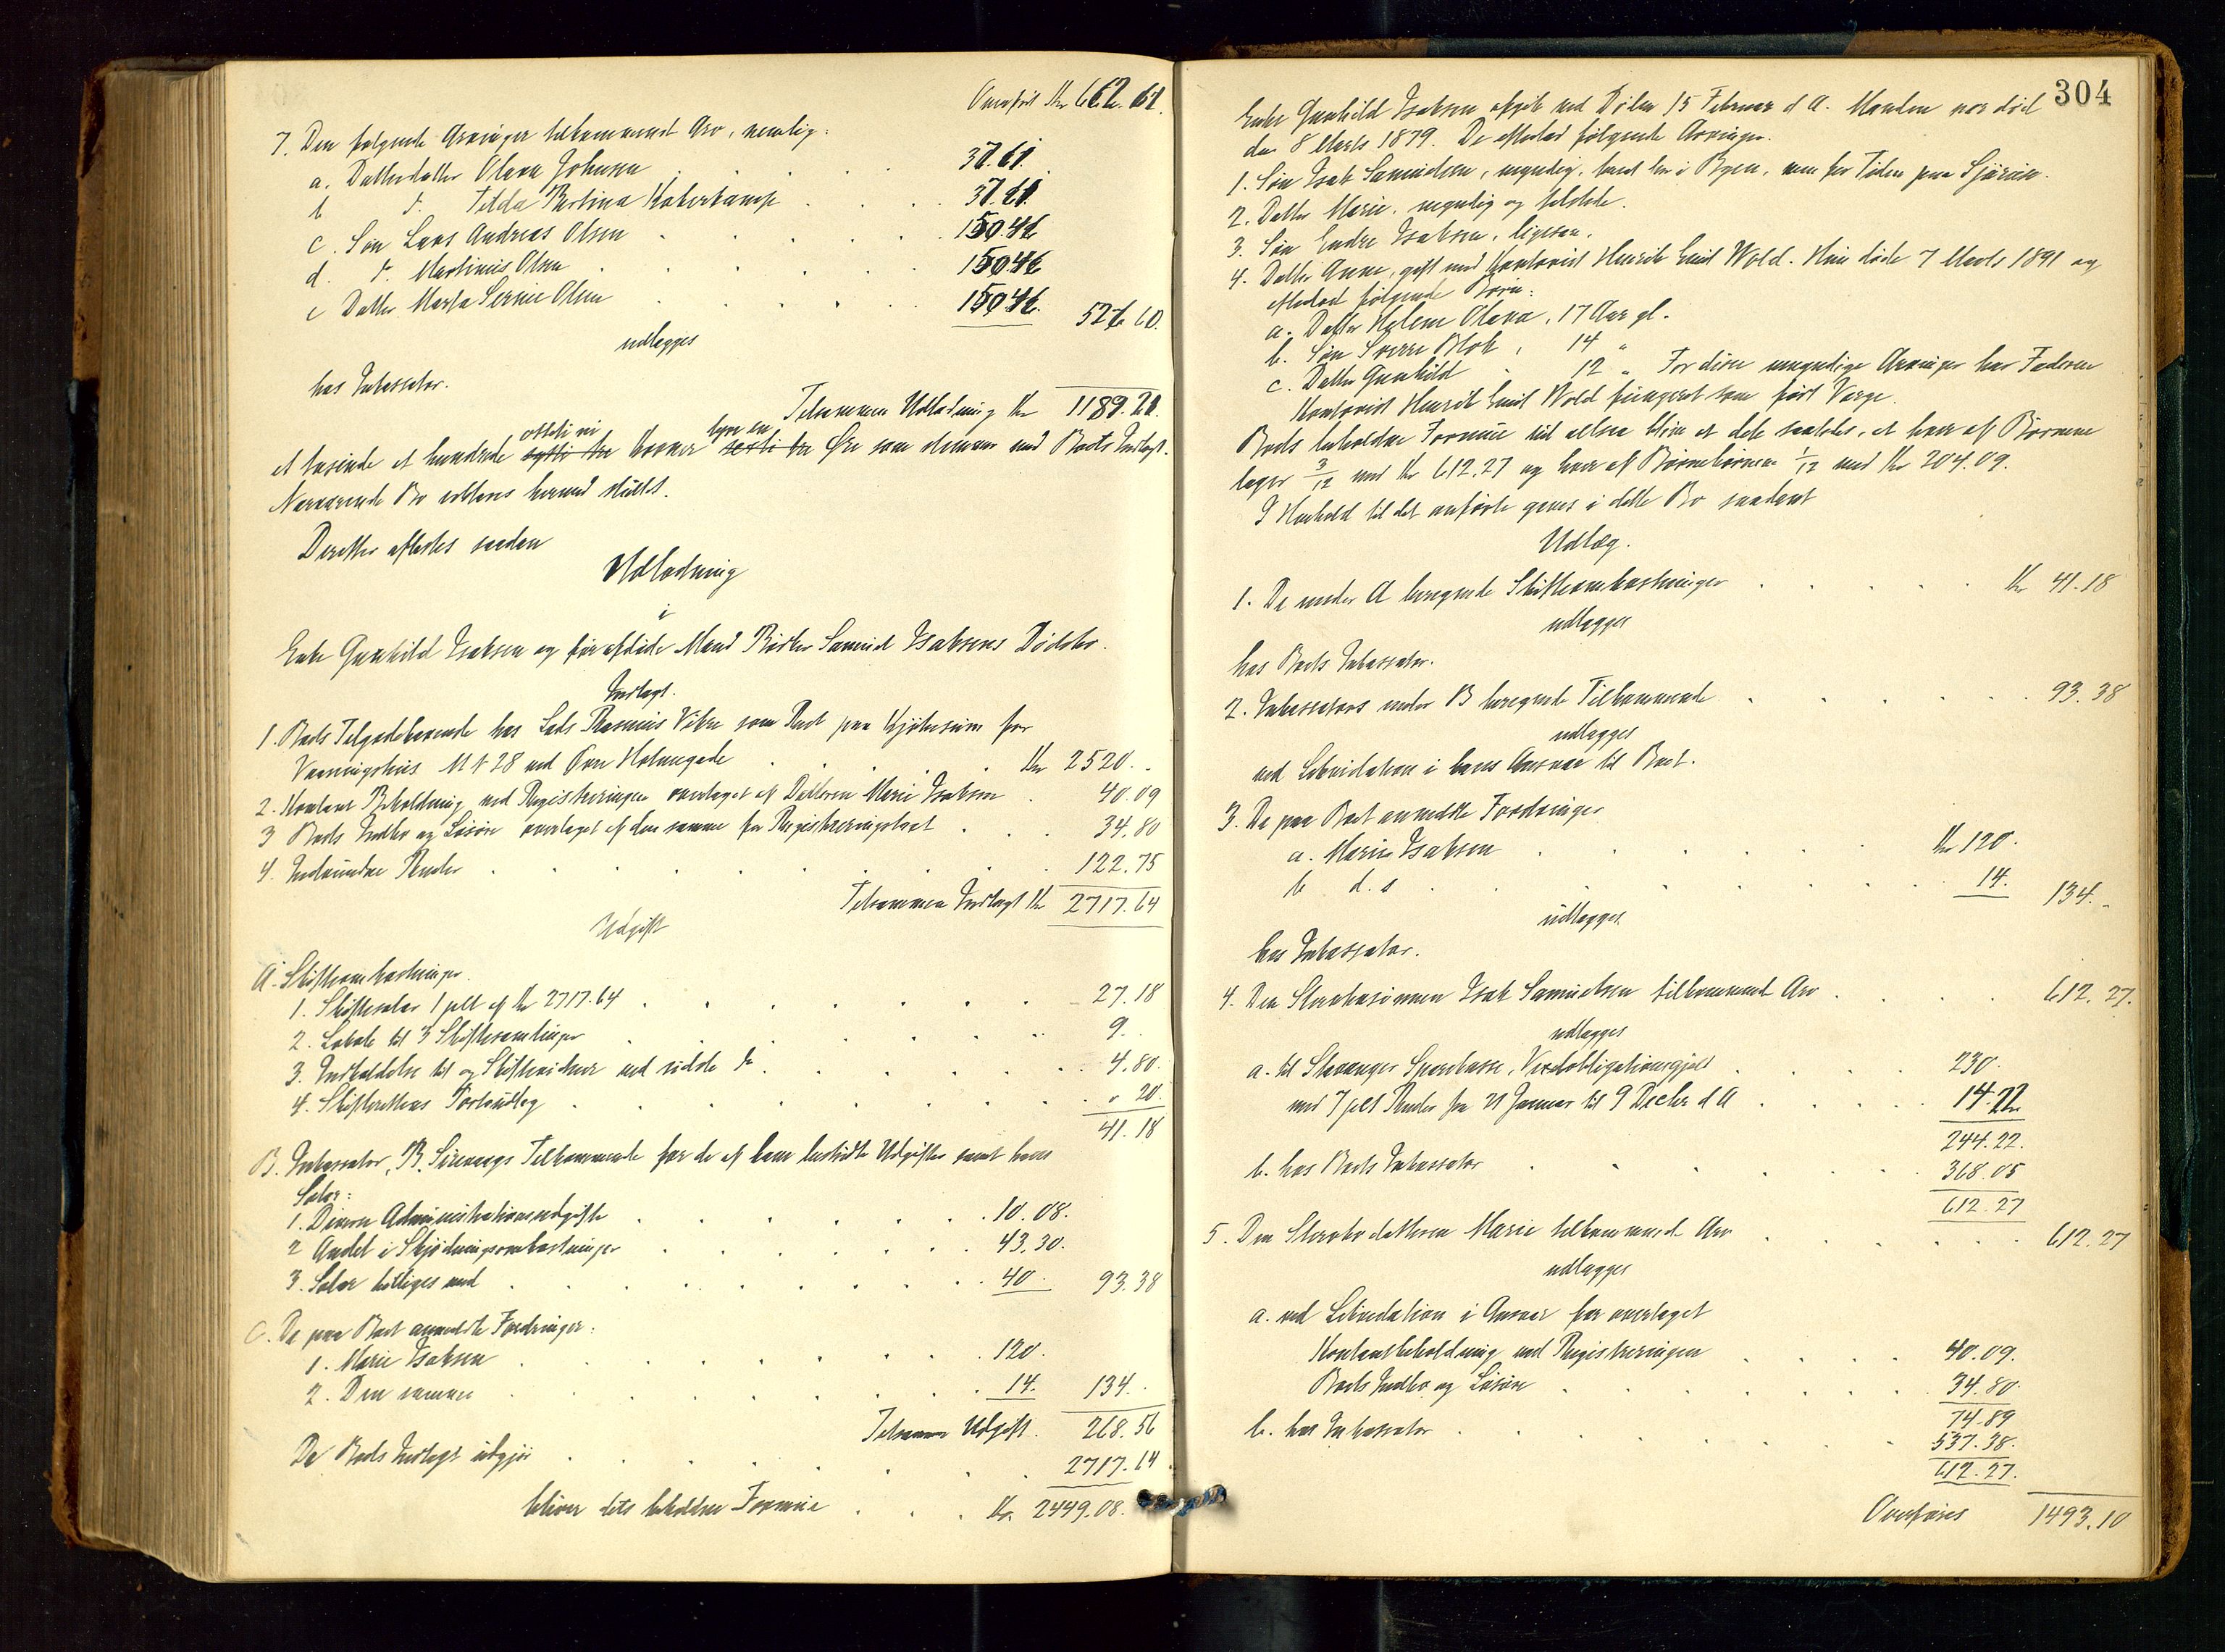 Overført Kr 662.61.
7. Den følgende Arvinger tilkommende Arv, nemlig:
a. Datterdatter Olava Johnsen 37.61
b d. Tilda Bertina Haberkamp 37.61
c. Søn Lars Andreas Olsen 150.46
d. d. Martinius Olsen 150.46
e Datter Marta Serine Olsen 150.46. 526.60.
udlægges
hos Inkassator.
Tilsammen Udlodning Kr 1189.21.
otteti ni tyve en
et tusinde et hundrede Kroner Øre som stemmer med Boets Indtægt.
Nærværende Bo erklæres hermed sluttet.
Derefter afholdtes saadan
Udlodning
i
Enke Gunhild Isaksen og forafdøde Mand Bødker Samuel Isaksens Dødsbo.
Indtægt.
1. Boets Tilgodehavende hos Lods Rasmus Vikse som Rest paa Kjøbesum for
Vaaningshus M N 28 ved Øvre Holmegade Kr 2520.-
2. Kontant Beholdning ved Registreringen overtaget af Datteren Marie Isaksen 40.09
3 Boets Indbo og Løsøre overtaget af den samme for Registreringstaxt 34.80
4. Indvundne Renter 122.75
Tilsammen Indtægt Kr 2717.64
Udgift
A. Skifteomkostninger.
1. Skiftesalær 1 pCt af Kr 2717.64 27.18
2. Lokale til 3 Skiftesamlinger 9.
3. Indkaldelse til og Skiftevidner ved sidste do 4.80
4. Skifterettens Portoudlæg " 20.
41.18
B. Inkassator, B. Sirevaags Tilkommende for de af ham bestridte Udgifter samt hans
Salær:
1. Diverse Administrationsudgifter 10.08.
2 Andel i Skjødningsomkostninger 43.30.
3. Salær billiges med 40. 93.38
C. De paa Boet anmeldte Fordringer:
1. Marie Isaksen 120.
2. Den samme 14. 134.-
Tilsammen Udgift. 268.56
Da Boets Indtægt udgjør 2717.64
bliver dets beholdne Formue Kr. 2449.08.
304
Enke Gunhild Isaksen afgik ved Døden 15 Februar d A. Manden var død
den 8 Marts 1879. De efterlod følgende Arvinger.
1. Søn Isak Samuelsen, myndig, bosat her i Byen, men for Tiden paa Sjøreise.
2. Datter Marie, myndig og tilstede.
3. Søn Endre Isaksen, ligesaa.
4. Datter Anne, gift med Kontorist Henrik Emil Wold. Hun døde 7 Marts 1891 og
efterlod følgende Børn:
a. Datter Helene Olava, 17 Aar gl.
b. Søn Sverre Blok, 14 "
c. Datter Gunhild 12 " For disse umyndige Arvinger har Faderen
Kontorist Henrik Emil Wold fungeret som født Værge.
Boets beholdne Formue vil altsaa blive at dele saaledes, at hver af Børnene
tager 3/12 med Kr 612.27 og hver af Børnebørnene 1/12 med Kr 204.09.
I Henhold til det anførte gjøres i dette Bo saadant
Udlæg.
1. De under A beregnede Skifteomkostninger Kr 41.18
udlægges
hos Boets Inkassator.
2. Inkassators under B beregnede Tilkommende 93.38
udlægges
ved Likvidation i hans Ansvar til Boet.
3. De paa Boet anmeldte Fordringer
a. Marie Isaksen Kr 120.
b d. s 14. 134.-
udlægges
hos Inkassator.
4. Den Sterbosønnen Isak Samuelsen tilkommende Arv 612.27.
udlægges
a. til Stavanger Sparekasse, Vexelobligationsgjæld 230.
med 7 pCt Renter fra 21 Januar til 9 Decbr d A 14.22
244.22.
b. hos Boets Inkassator 368.05
612.27
5. Den Sterbodatteren Marie tilkommende Arv 612.27
udlægges
a. ved Likvidation i Ansvar for overtaget
Kontantbeholdning ved Registreringen 40.09.
Boets Indbo og Løsøre 34.80.
74.89
b. hos Inkassator 537.38.
612.27.
Overføres 1493.10